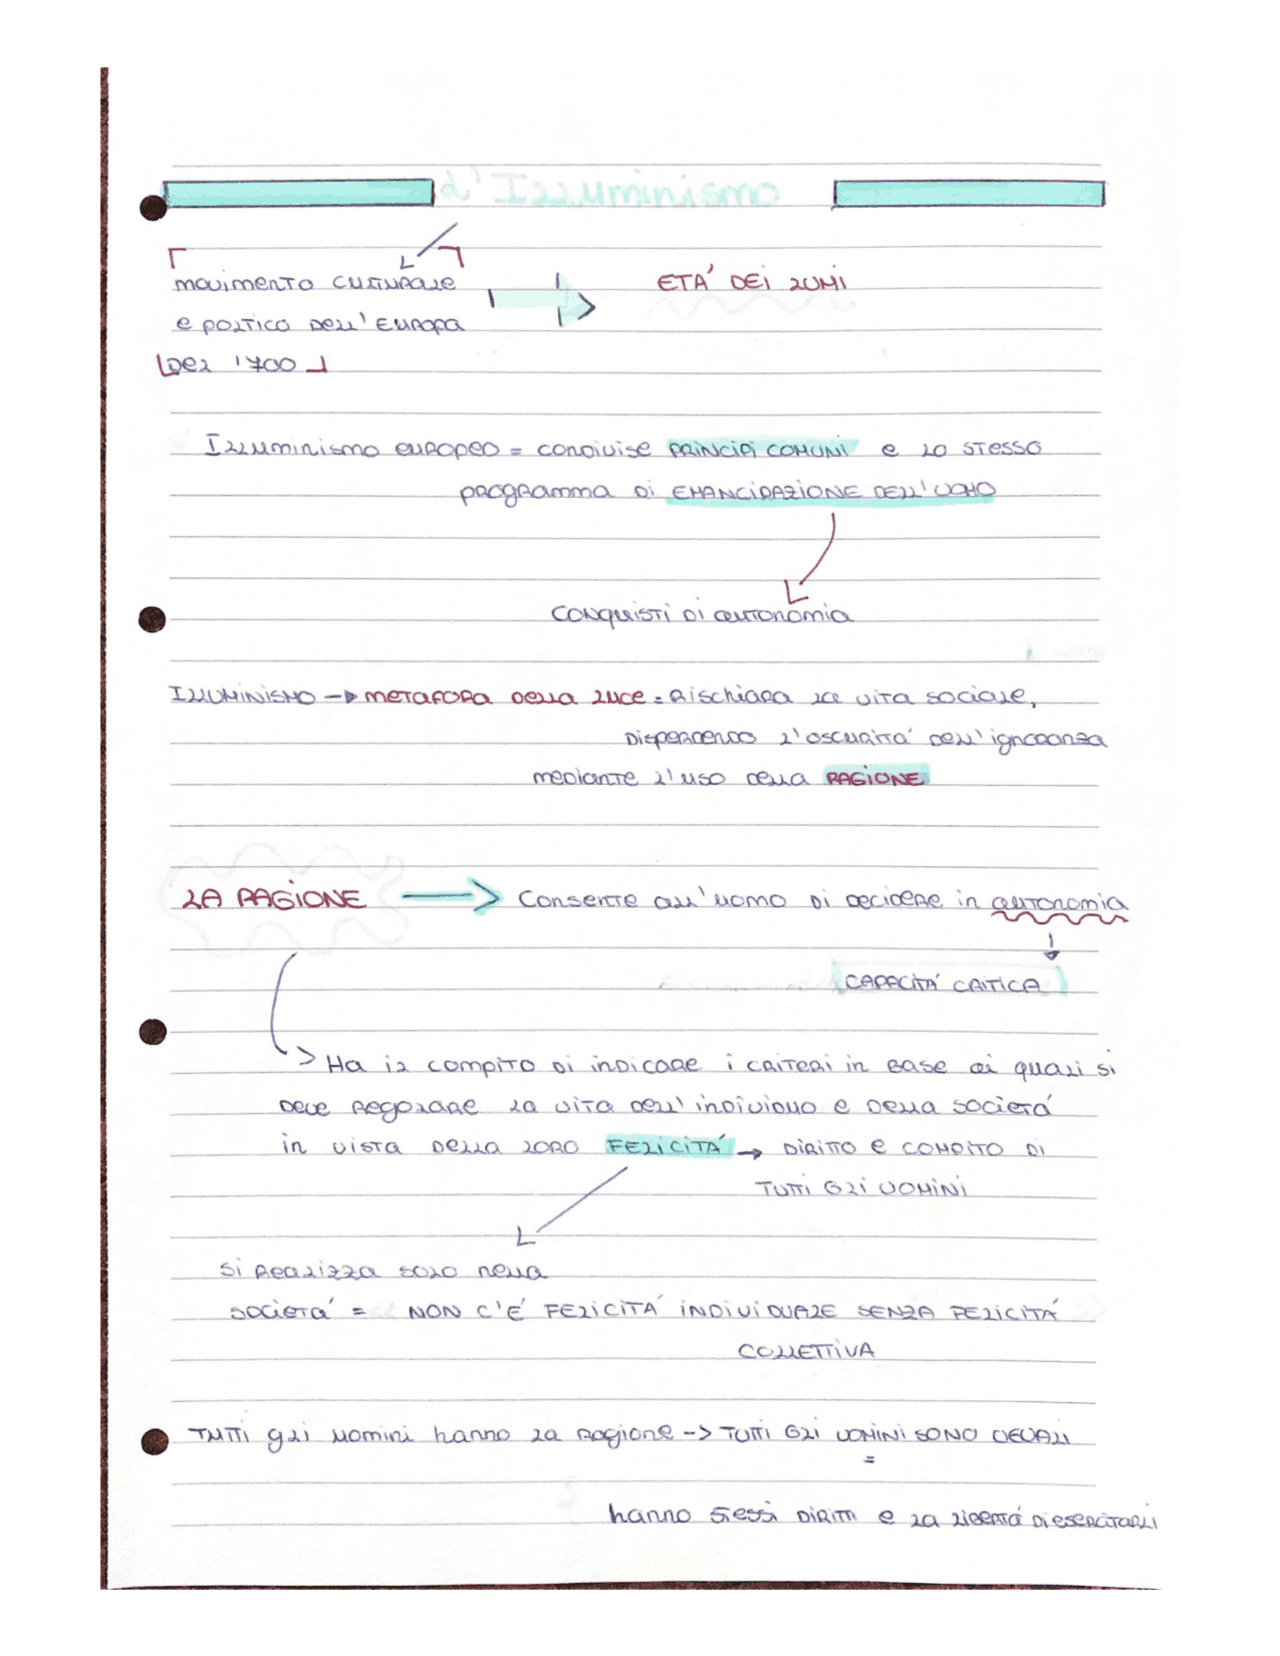 L'Illuminismo
movimento culturale
e politico dell'Europa
del '700
ETÁ DEI LUMI
Illuminismo europeo = condivise PRINCIPI COMUNI e lo stesso
programma di EMANCIPAZIONE DELL'UOMO
conquisti di autonomia
ILLUMINISMO -> METAFORA DELLA LUCE = Rischiara la vita sociale,
disperdendo l'oscuritá dell'ignoranza
mediante l'uso della RAGIONE
LA RAGIONE -> Consente all'uomo di decidere in autonomia
CAPACITÁ CRITICA
> Ha il compito di indicare i criteri in base ai quali si
deve regolare la vita dell'individuo e della societá
in vista della loro FELICITÁ -> diritto e compito di
tutti gli uomini
si realizza solo nella
societá = NON C'É FELICITÁ INDIVIDUALE SENZA FELICITÁ
COLLETTIVA
Tutti gli uomini hanno la ragione -> TUTTI GLI UOMINI SONO UGUALI
=
hanno stessi diritti e la libertá di esercitarli